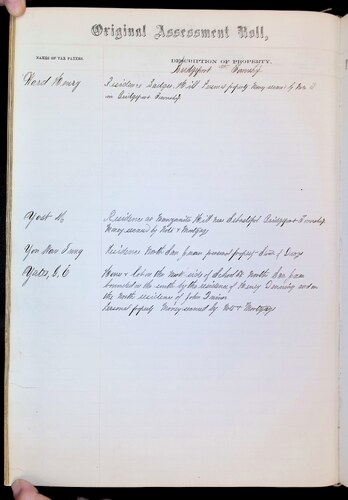 Original Assessment Roll,
NAMES OF TAX PAYERS
DESCRIPTION OF PROPERTY.
Bridgeport Township
Ward Henry
Residence Badger Hill Personal property Money secured by Note &
in Bridgeport Township
Yost M,
Residence on Manzanita Hill near Sebastopol Bridgeport Township
Money secured by Note & Mortgage
You Wan Tung
Residence North San Juan personal property
Yates, J, C
House & lot on the North side of School St North San Juan
bounded on the south by the residence of Henry and on
the North residence of John
Personal property Money secured by Note & Mortgage